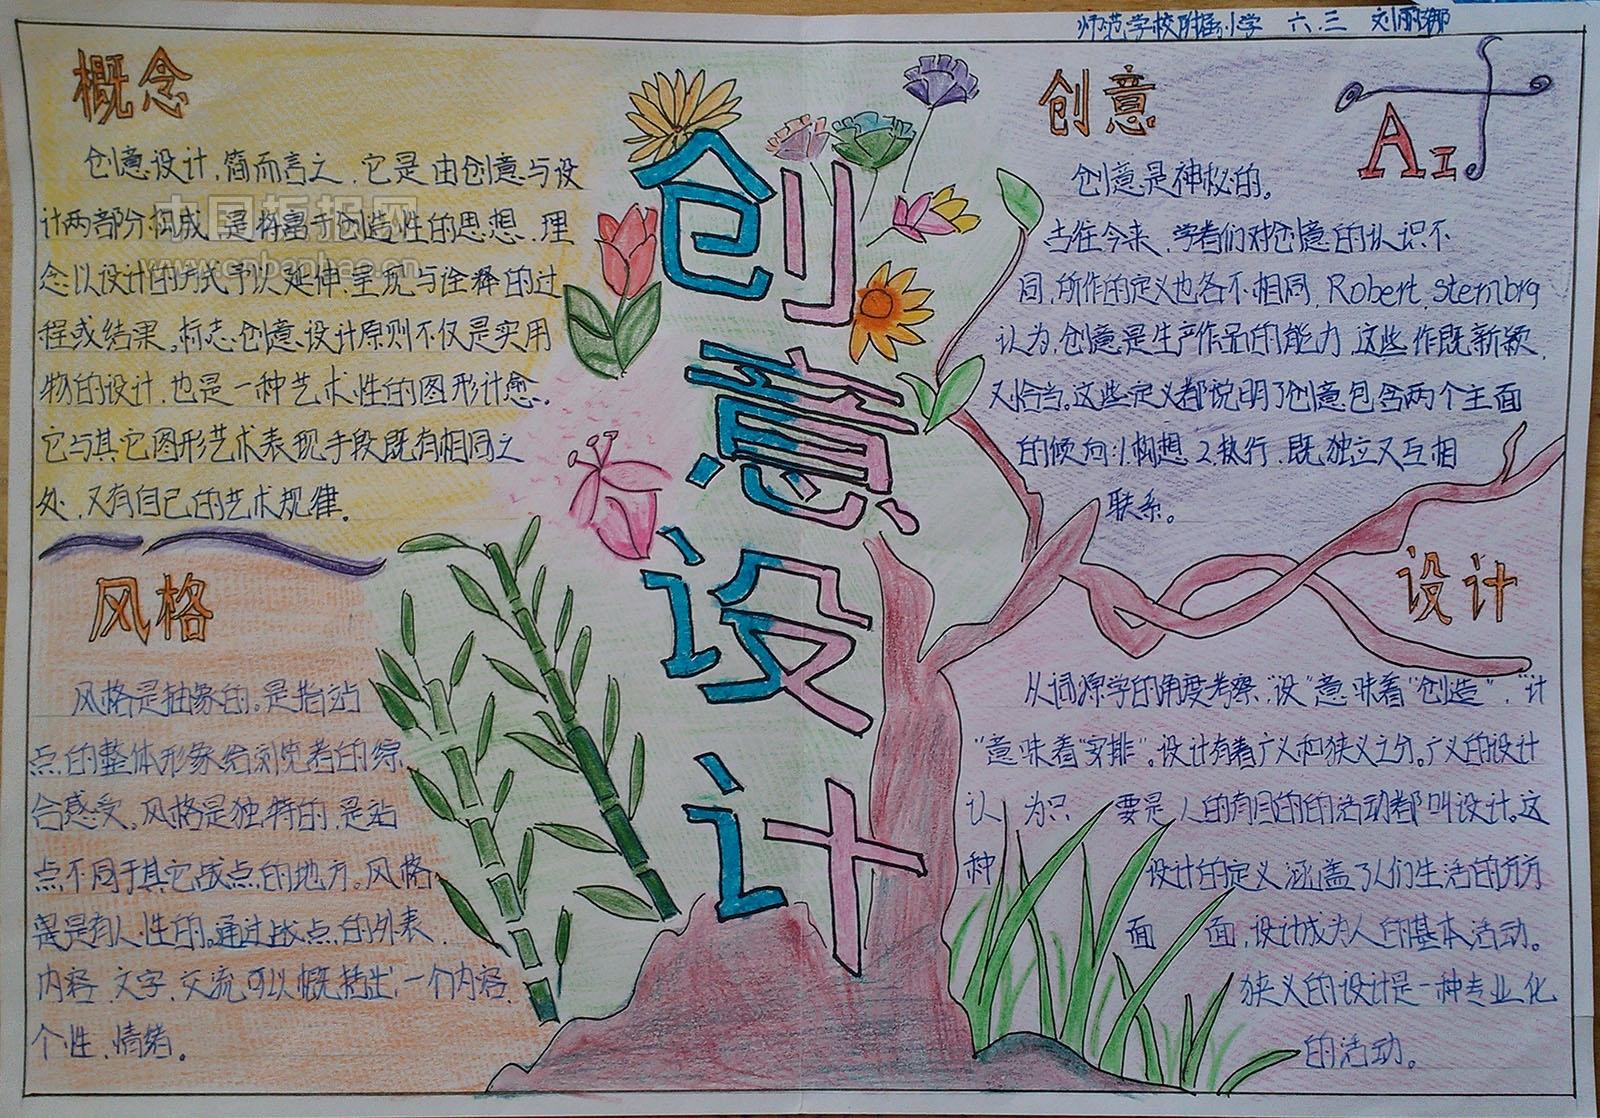 师范学校附属小学 六.三 刘丽娜
概念
创意设计,简而言之,它是由创意与设
计两部分构成,是将富于创造性的思想、理
念以设计的方式予以延伸、呈现与诠释的过
程或结果。标志创意设计原则不仅是实用
物的设计,也是一种艺术性的图形计愈。
它与其它图形艺术表现手段既有相同之
处,又有自己的艺术规律。
风格
风格是抽象的。是指站
点的整体形象给浏览者的综
合感受。风格是独特的,是站
点不同于其它战点的地方。风格
是有人性的。通过战点的外表,
内容,文字,交流可以概括出一个内容,
个性,情绪。
创意设计
创意
AI
创意是神秘的。
古往今来,学者们对创意的认识不
同,所作的定义也各不相同,Robert.sternbrg
认为,创意是生产作品的能力,这些作既新颖,
又恰当。这些定义都说明了创意包含两个主面
的倾向:1.构想 2.执行,既独立又互相
联系。
设计
从词源学的角度考察,"设"意味着"创造","计
"意味着"安排"。设计有着广义和狭义之分。广义的设计
认为只要是人的有目的的活动都叫设计。这
种设计的定义涵盖了人们生活的方方
面面,设计成为人的基本活动。
狭义的设计是一种专业化
的活动。
中国折报网
www.cnbanbao.cn